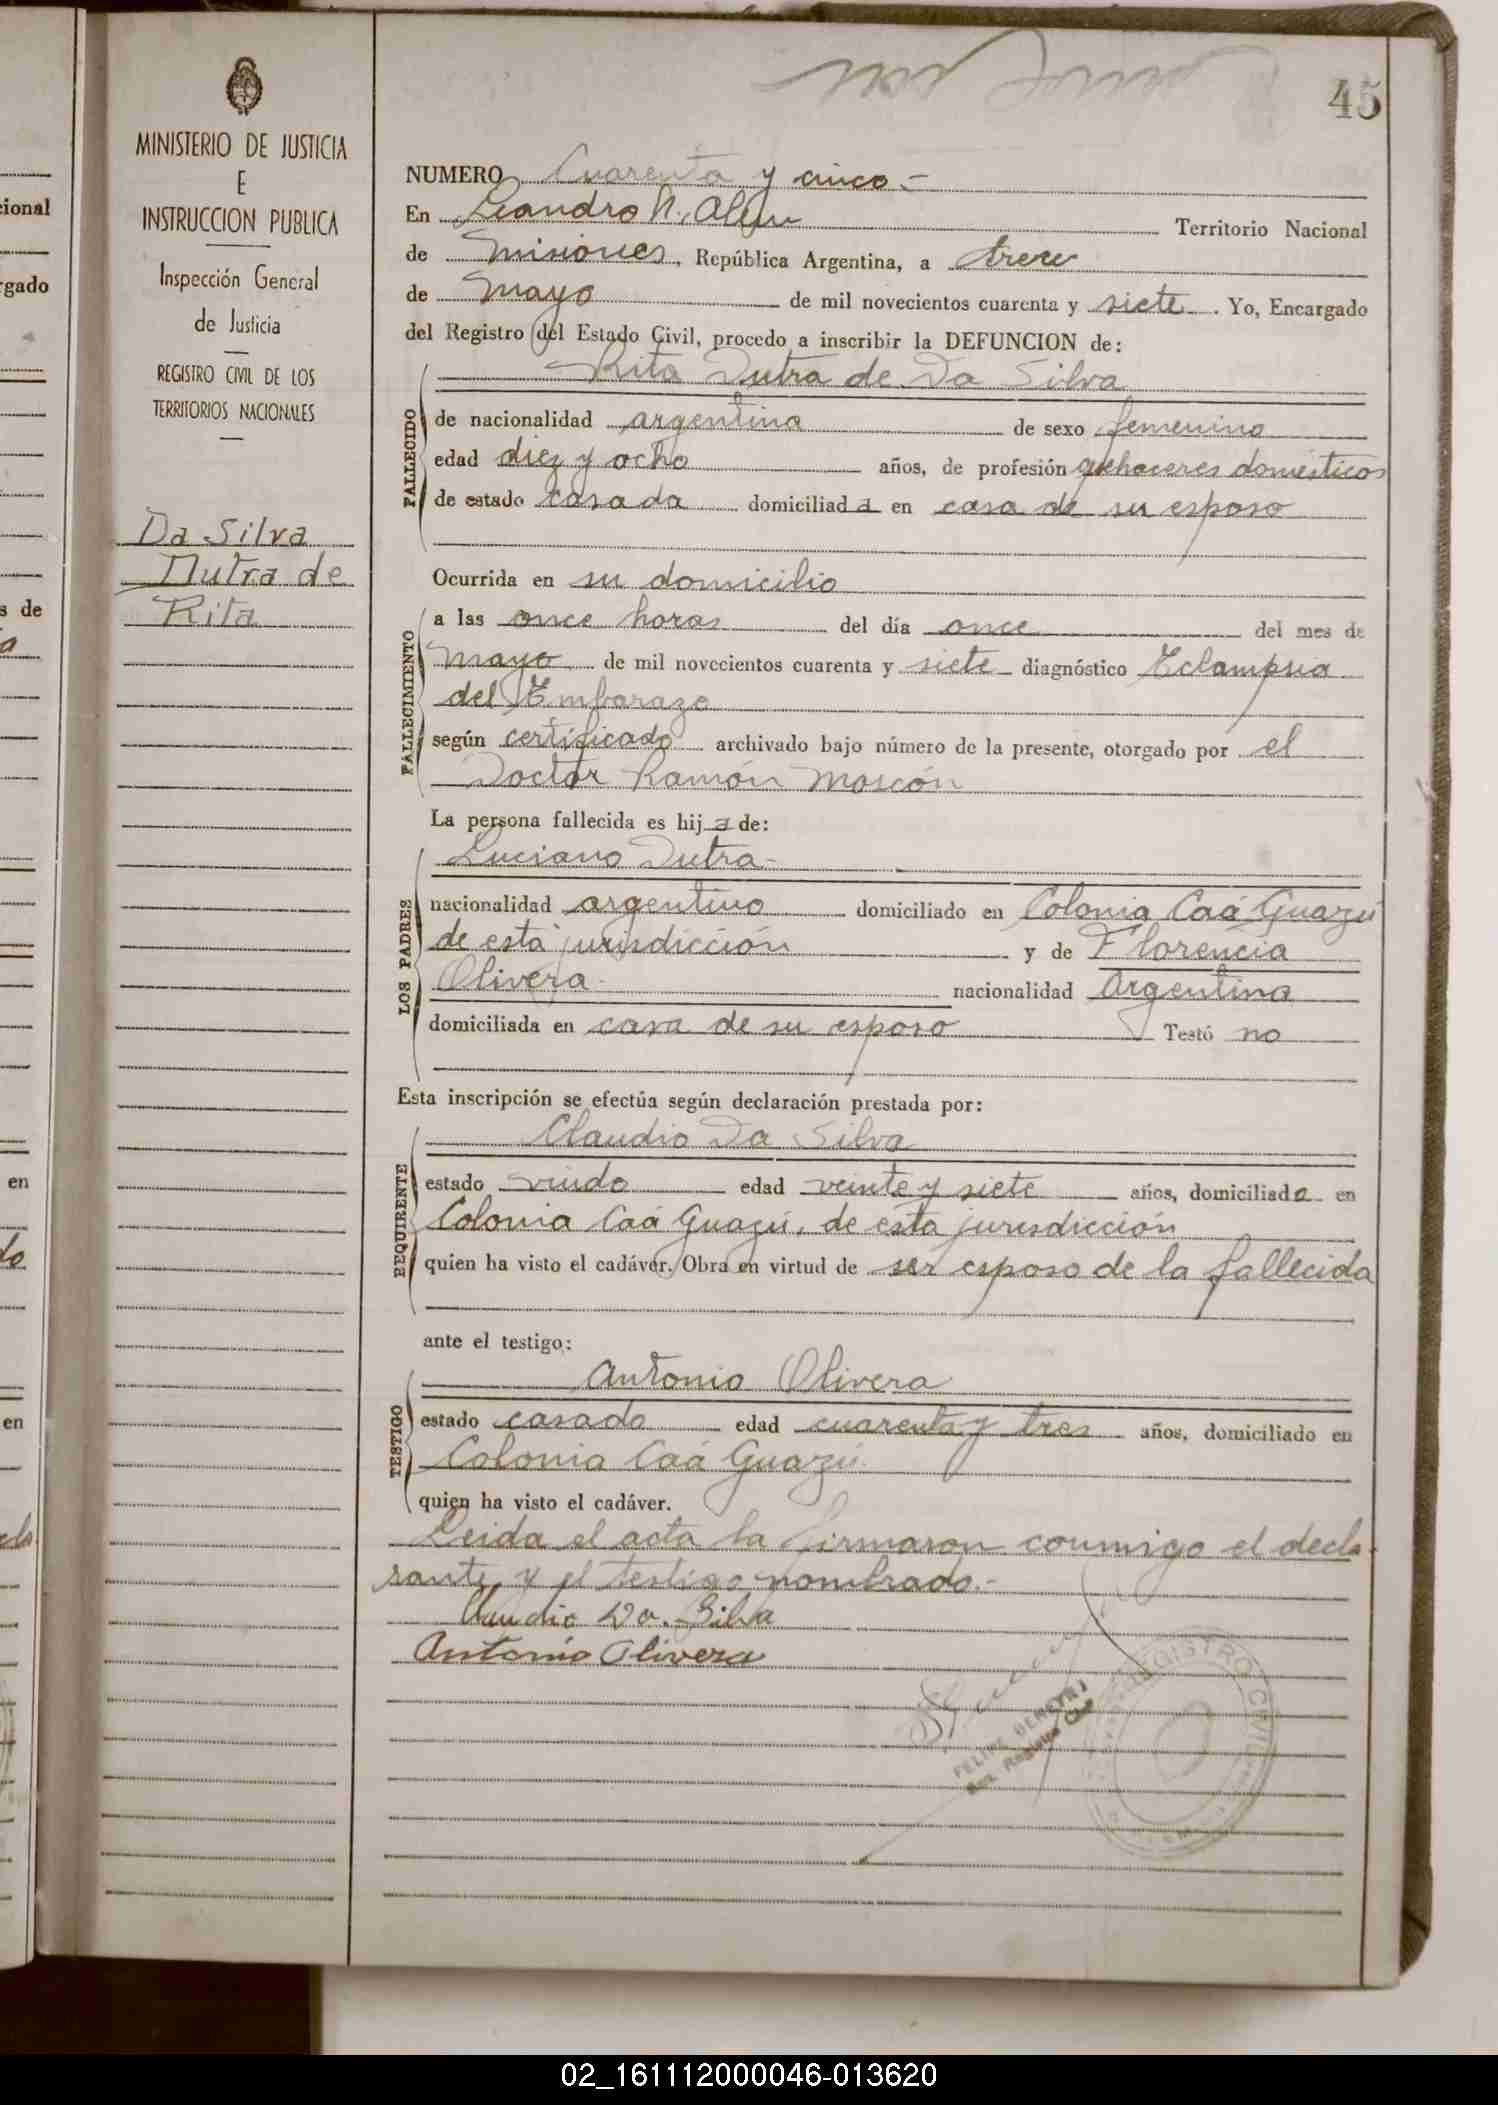 45
MINISTERIO DE JUSTICIA
E
INSTRUCCION PUBLICA
Inspección General
de Justicia
REGISTRO CIVIL DE LOS
TERRITORIOS NACIONALES
Da Silva
Dutra de
Rita
NUMERO Cuarenta y cinco.-
En Leandro N. Alem Territorio Nacional
de Misiones, República Argentina, a trece
de Mayo de mil novecientos cuarenta y siete. Yo, Encargado
del Registro del Estado Civil, procedo a inscribir la DEFUNCION de:
Rita Dutra de Da Silva
FALLECIDO
de nacionalidad argentina de sexo femenino
edad diez y ocho años, de profesión quehaceres domésticos
de estado casada domiciliada en casa de su esposo
Ocurrida en su domicilio
FALLECIMIENTO
a las once horas del día once del mes de
Mayo de mil novecientos cuarenta y siete diagnóstico Eclampsia
del Embarazo
según certificado archivado bajo número de la presente, otorgado por el
Doctor Ramón Moscón
La persona fallecida es hija de:
LOS PADRES
Luciano Dutra-
nacionalidad argentino domiciliado en Colonia Caá Guazú
de esta jurisdicción y de Florencia
Olivera- nacionalidad Argentina
domiciliada en casa de su esposo Testó no
Esta inscripción se efectúa según declaración prestada por:
REQUIRENTE
Claudio Da Silva
estado viudo edad veinte y siete años, domiciliado en
Colonia Caá Guazú, de esta jurisdicción
quien ha visto el cadáver. Obra en virtud de ser esposo de la fallecida
ante el testigo:
TESTIGO
Antonio Olivera
estado casado edad cuarenta y tres años, domiciliado en
Colonia Caá Guazú.
quien ha visto el cadáver.
Leida el acta la firmaron conmigo el decla-
rante y el testigo nombrado.-
Claudio Da. Silva
Antonio Olivera
REGISTRO CIVIL
ional
rgado
s de
en
en
02_161112000046-013620